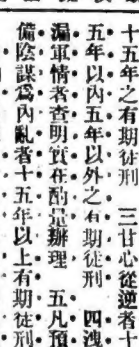 十五年之有期徒刑　三甘心從逆者十
五年以內五年以外之有期徒刑　四洩
漏軍情者查明實在酌量辦理　五凡預
備陰謀爲內亂者十五年以上有期徒刑